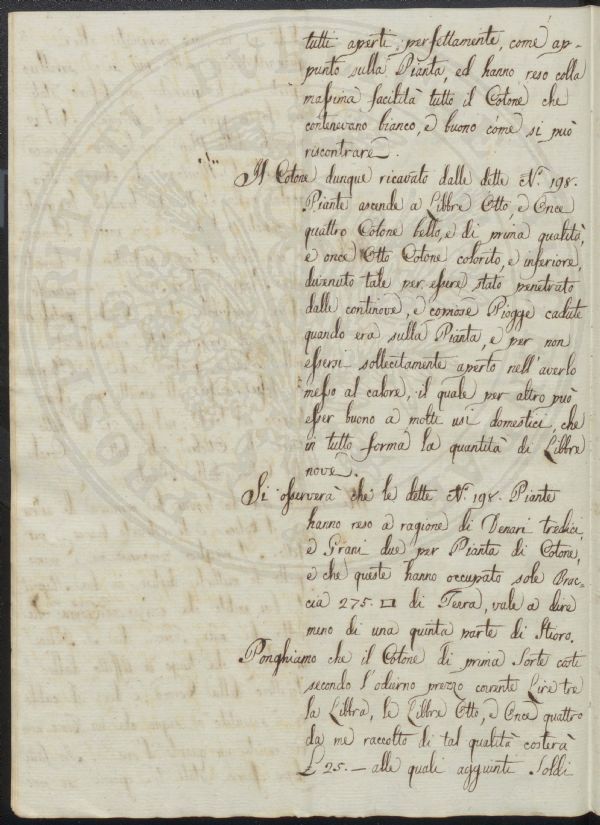 tutti aperti perfettamente, come ap-
punto sulla Pianta, ed hanno reso colla
massima facilità tutto il Cotone che
contenevano bianco, e buono come si può
riscontrare.
Il Cotone dunque ricavato dalle dette N.º 198.
Piante ascende a Libbre Otto, e Once
quattro Cotone bello, e di prima qualità,
e once Otto Cotone colorito, e inferiore,
divenuto tale per essere stato penetrato
dalle continove, e copiose Piogge cadute
quando era sulla Pianta, e per non
essersi sollecitamente aperto nell'averlo
messo al calore, il quale per altro può
esser buono a molti usi domestici, che
in tutto forma la quantità di Libbre
nove.
Si osserverà che le dette N.º 198. Piante
hanno reso a ragione di Denari tredici,
e Grani due per Pianta di Cotone,
e che queste hanno occupato sole Brac-
cia 275. □ di Terra, vale a dire
meno di una quinta parte di Stioro.
Ponghiamo che il Cotone di prima Sorte costi
secondo l'odierno prezzo corrente Lire tre
la Libbra, le Libbre Otto, e Once quattro
da me raccolto di tal qualità costerà
£ 25.— alle quali aggiunti Soldi